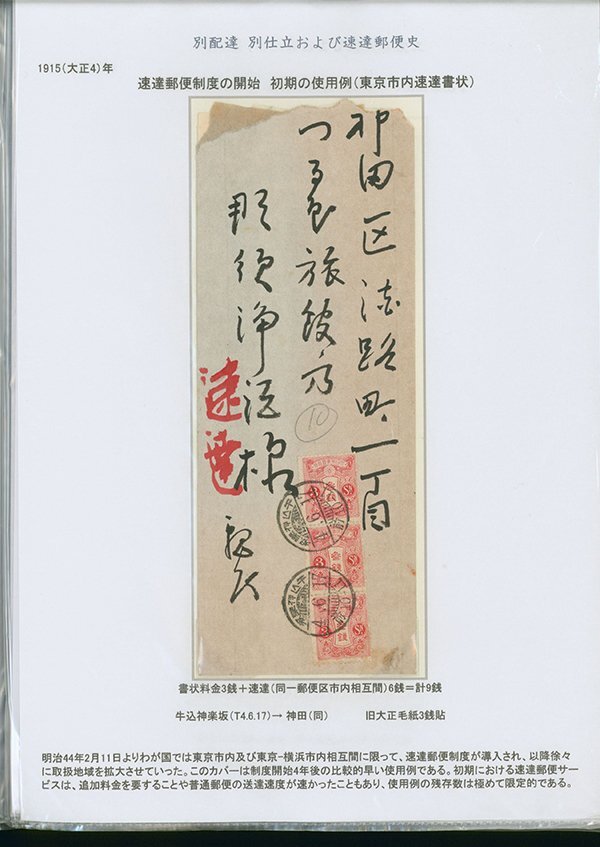 別配達 別仕立および速達郵便史
1915(大正4)年
速達郵便制度の開始 初期の使用例(東京市内速達書状)
神田区淡路町一丁目
旅館
那須
様
親展
速達
10
書状料金3銭+速達(同一郵便区市内相互間)6銭=計9銭
牛込神楽坂(T4.6.17)→ 神田(同) 旧大正毛紙3銭貼
明治44年2月11日よりわが国では東京市内及び東京-横浜市内相互間に限って、速達郵便制度が導入され、以降徐々
に取扱地域を拡大させていった。このカバーは制度開始4年後の比較的早い使用例である。初期における速達郵便サー
ビスは、追加料金を要することや普通郵便の送達速度が速かったこともあり、使用例の残存数は極めて限定的である。